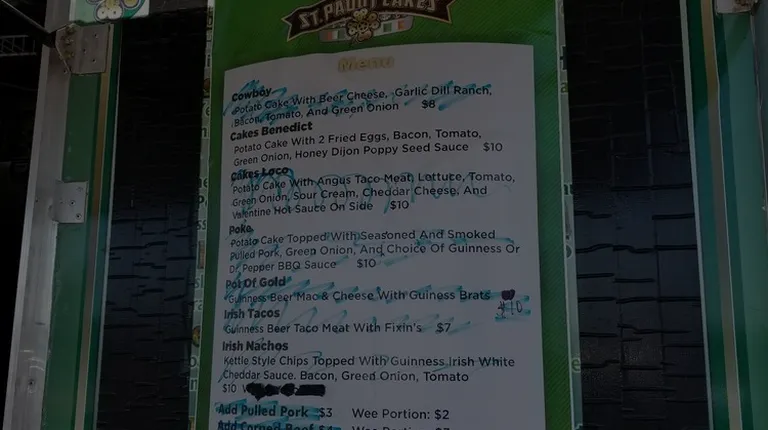 ST. PADDYCAKES
Menu
Cowboy
Potato Cake With Beer Cheese, Garlic Dill Ranch,
Bacon, Tomato, And Green Onion $8
Cakes Benedict
Potato Cake With 2 Fried Eggs, Bacon, Tomato,
Green Onion, Honey Dijon Poppy Seed Sauce $10
Cakes Loco
Potato Cake With Angus Taco Meat, Lettuce, Tomato,
Green Onion, Sour Cream, Cheddar Cheese, And
Valentine Hot Sauce On Side $10
Poke
Potato Cake Topped With Seasoned And Smoked
Pulled Pork, Green Onion, And Choice Of Guinness Or
Dr Pepper BBQ Sauce $10
Pot Of Gold
Guinness Beer Mac & Cheese With Guiness Brats $10
Irish Tacos
Guinness Beer Taco Meat With Fixin's $7
Irish Nachos
Kettle Style Chips Topped With Guinness Irish White
Cheddar Sauce, Bacon, Green Onion, Tomato
$10
Add Pulled Pork $3 Wee Portion: $2
Add Corned Beef $4 Wee Portion: